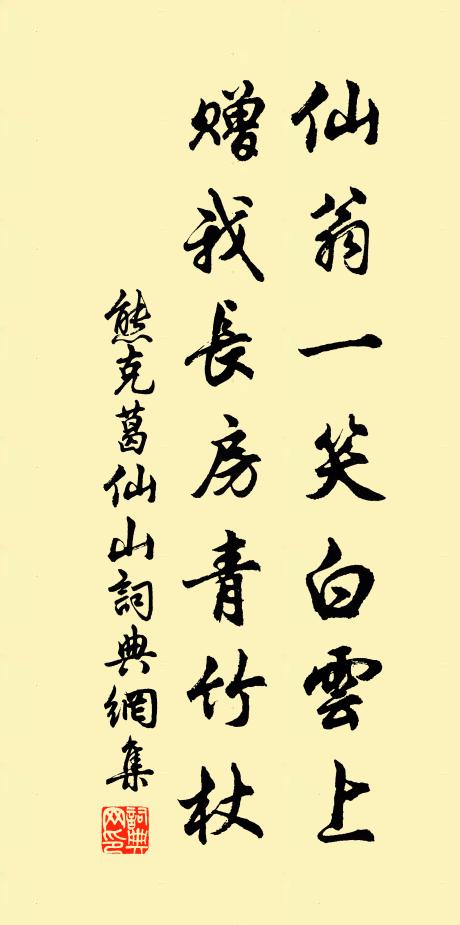 仙翁一笑白雲上
贈我長房青竹杖
熊克葛仙山詞典網集
詞典網印